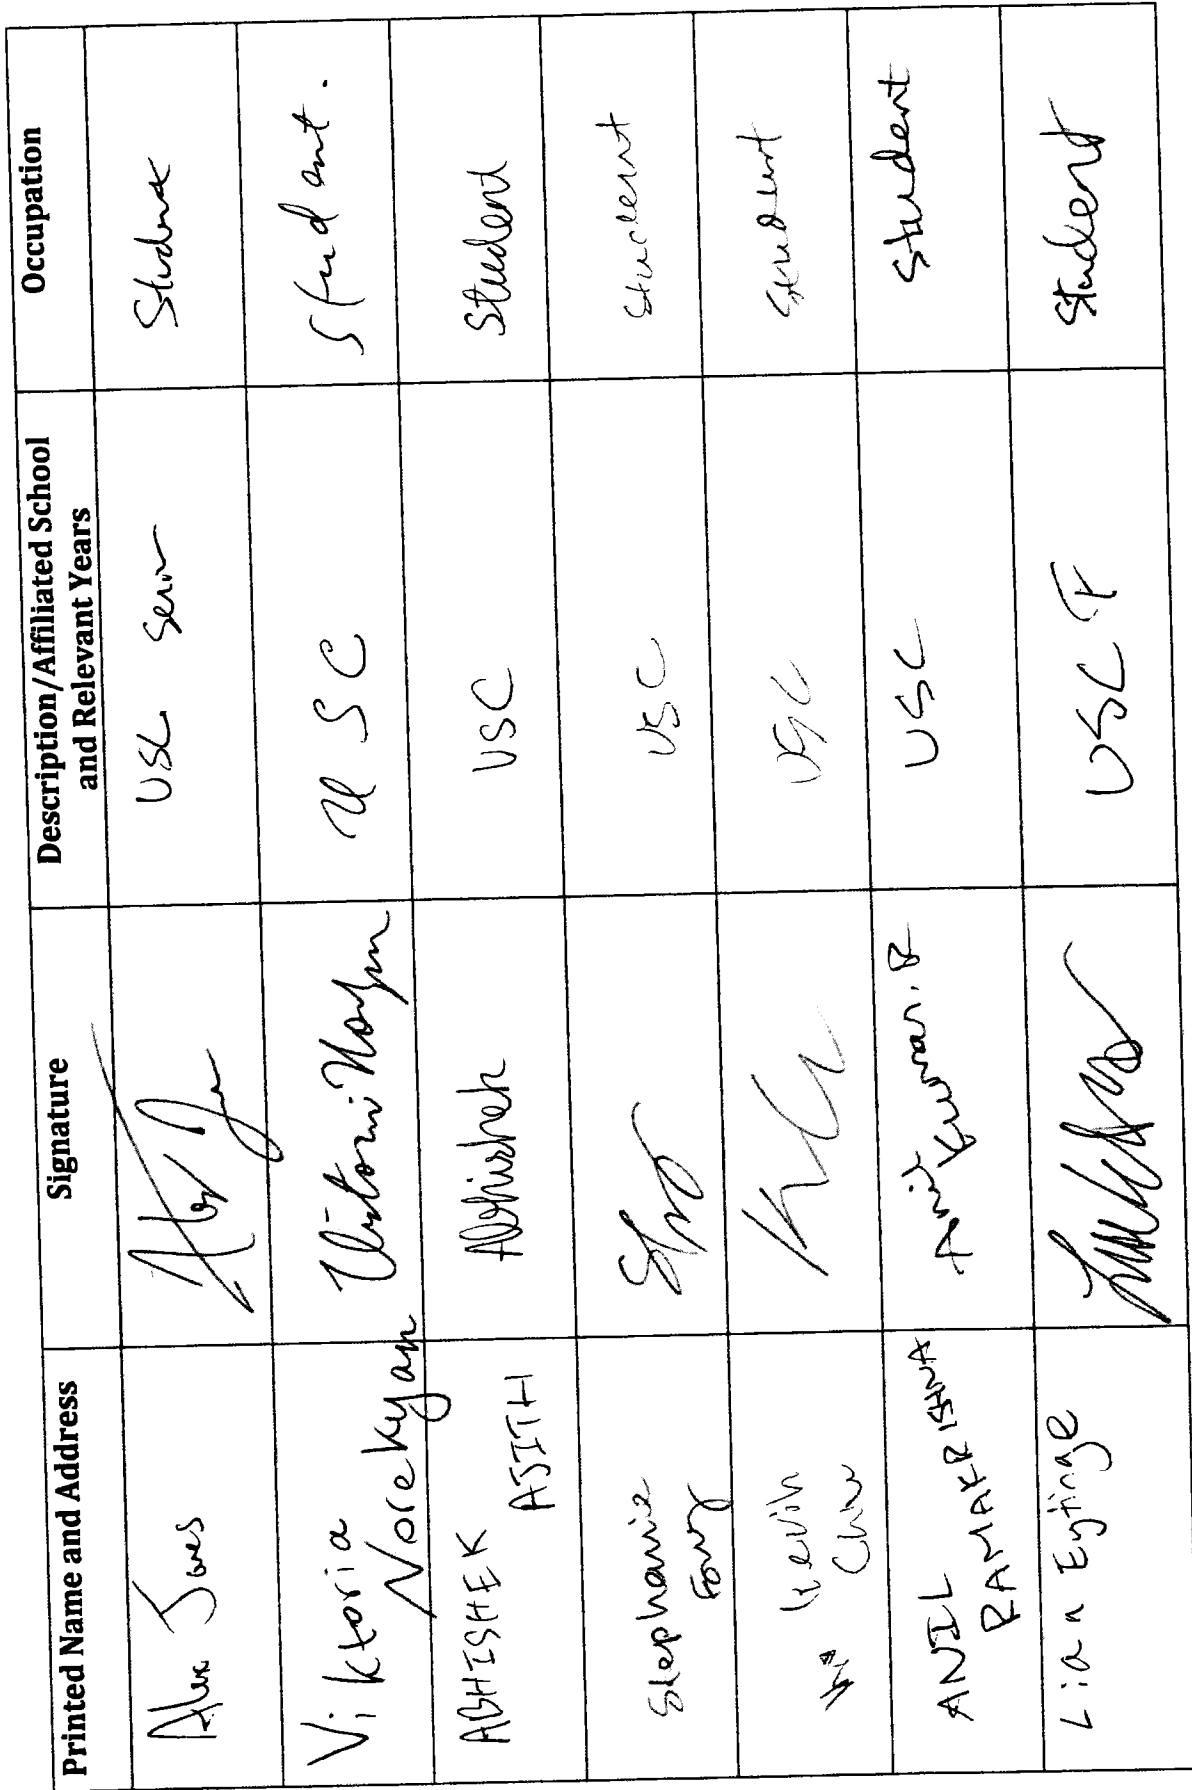 Printed Name and Address Signature Description/Affiliated School and Relevant Years Occupation
Alex Jones USC Senior Student
Viktoria Norekyan USC Student.
ABHISHEK AJITH Abhishek USC Student
Stephanie Fong USC Student
Kevin USC Student
ANIL RAMAKRISHNA Anil Kumar. R USC Student
Lian Eytinge USC Student